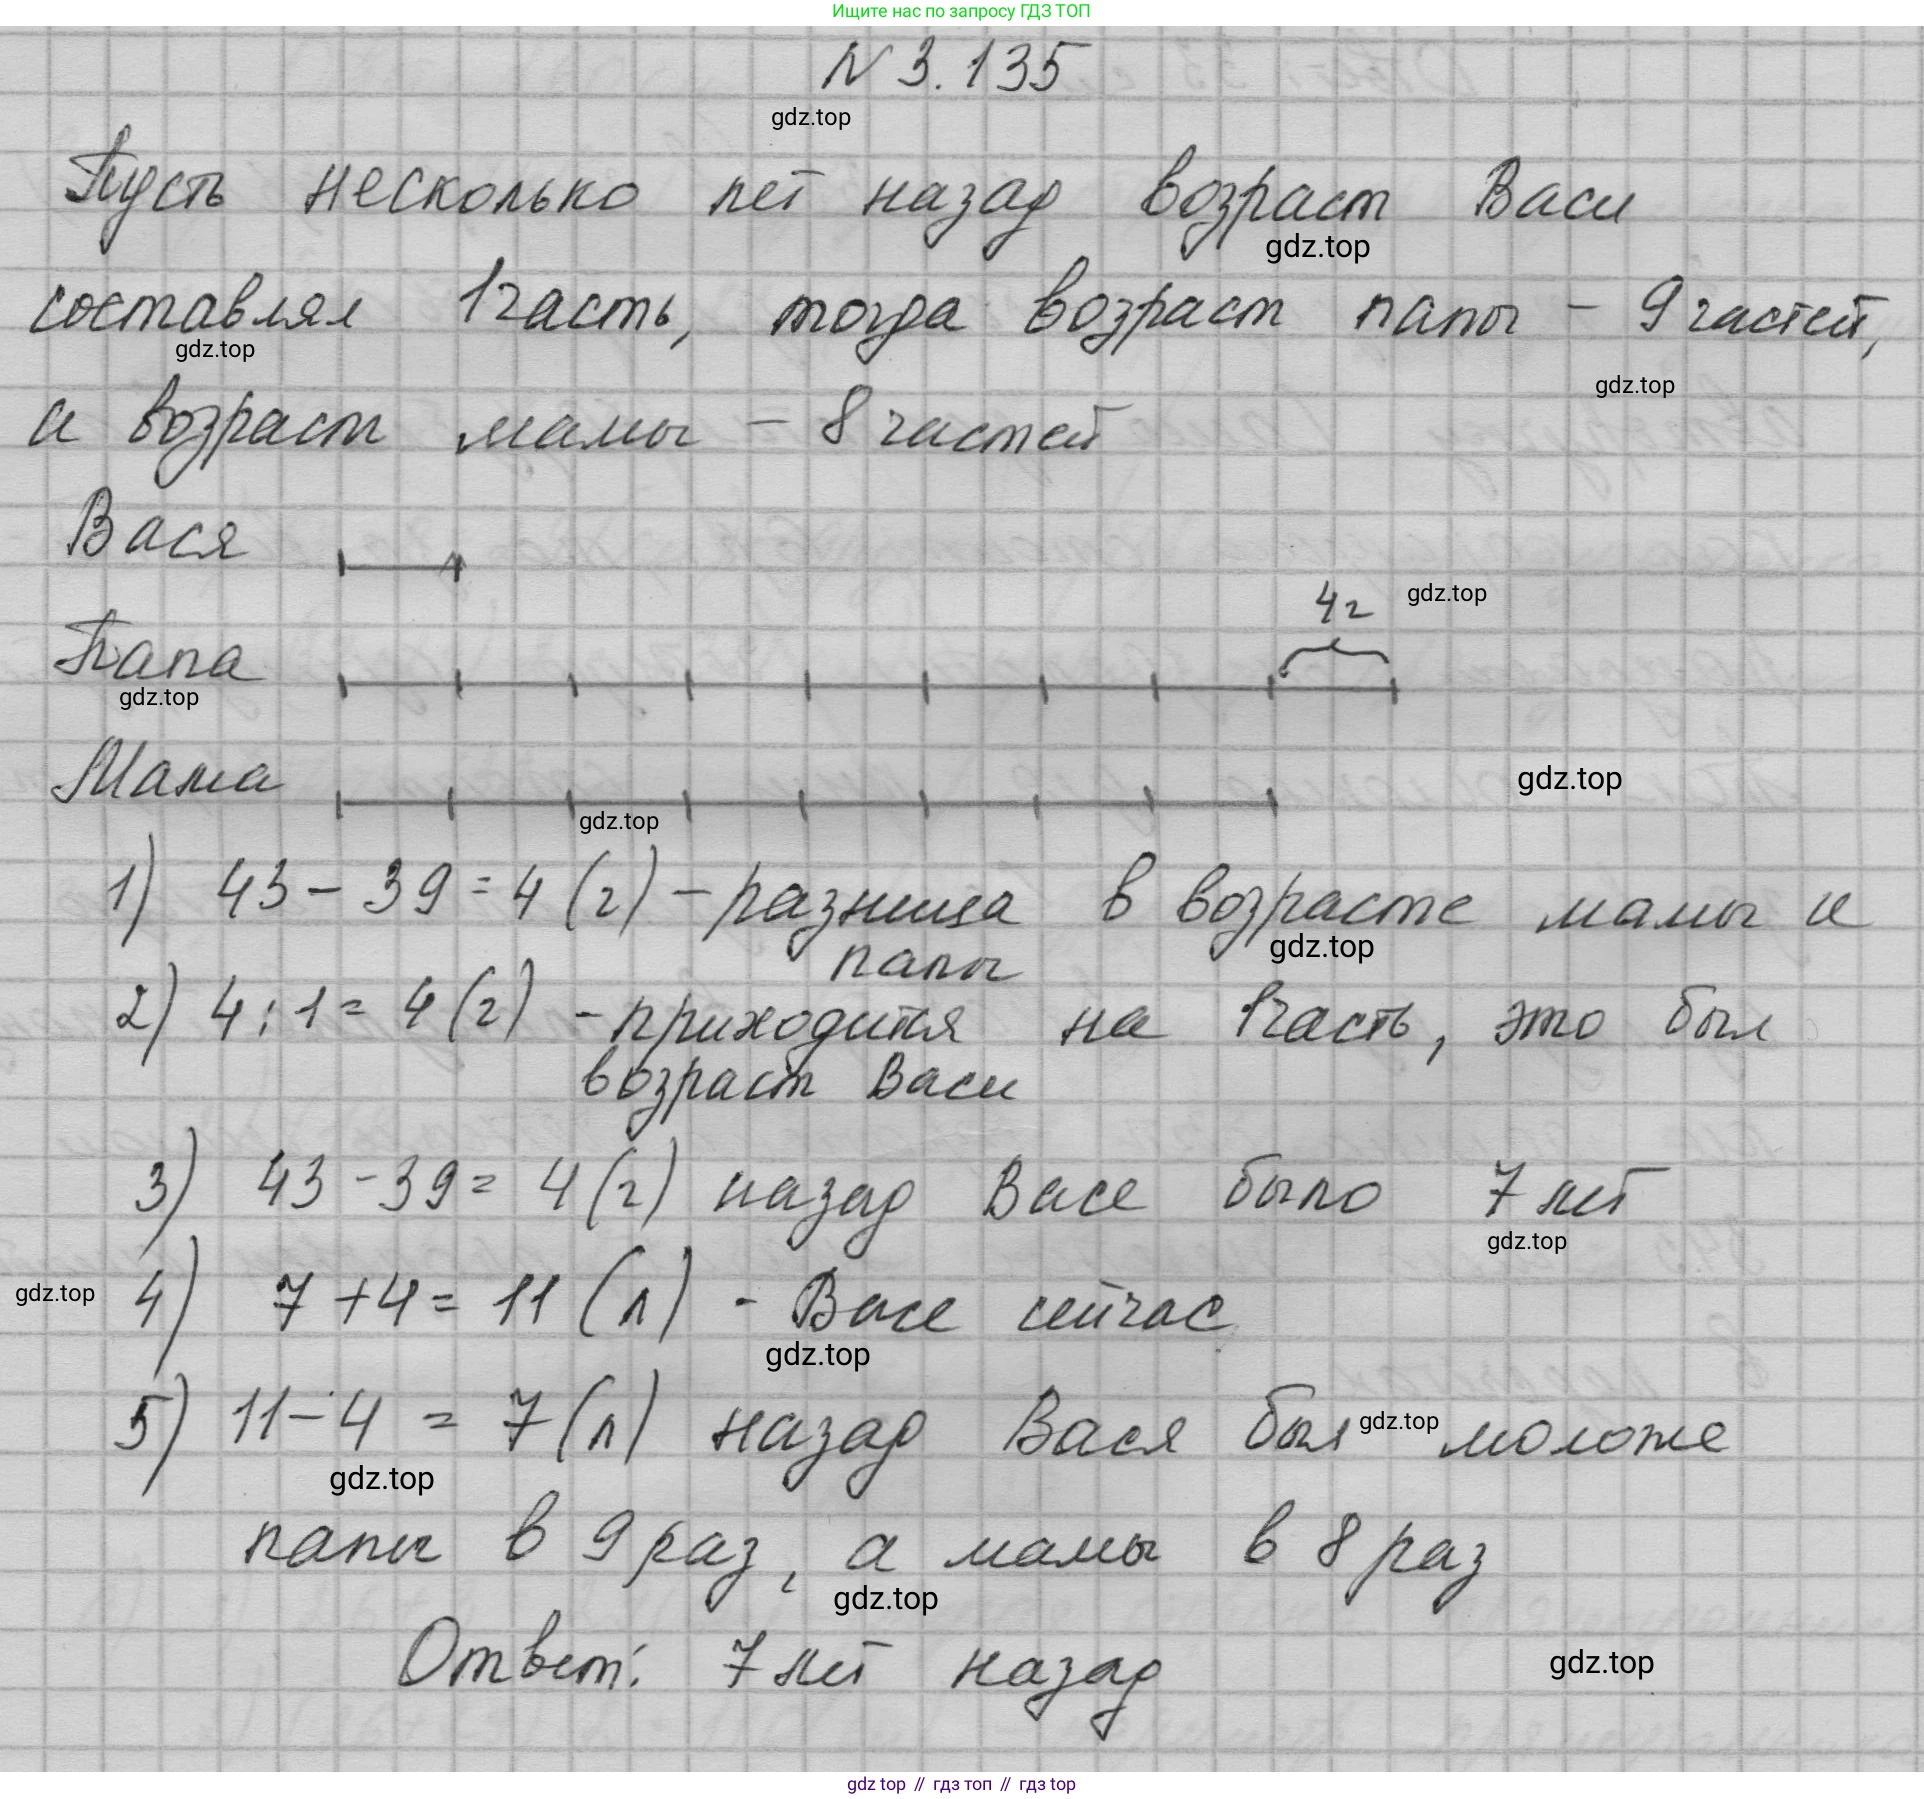 Ищите нас по запросу ГДЗ ТОП
N 3.135
gdz.top
Пусть несколько лет назад возраст Васи
gdz.top
составлял 1 часть, тогда возраст папы – 9 частей,
gdz.top
gdz.top
а возраст мамы – 8 частей
Вася
4 г
gdz.top
Папа
gdz.top
Мама
gdz.top
gdz.top
1) 43 – 39 = 4 (г) – разница в возрасте мамы и
gdz.top
папы
2) 4 : 1 = 4 (г) – приходится на 1 часть, это был
возраст Васи
3) 43 – 39 = 4 (г) назад Васе было 7 лет
gdz.top
gdz.top
4) 7 + 4 = 11 (л) - Васе сейчас
gdz.top
5) 11 – 4 = 7 (л) назад Вася был моложе
gdz.top
gdz.top
папы в 9 раз, а мамы в 8 раз
gdz.top
Ответ: 7 лет назад
gdz.top
gdz top // гдз топ // гдз top